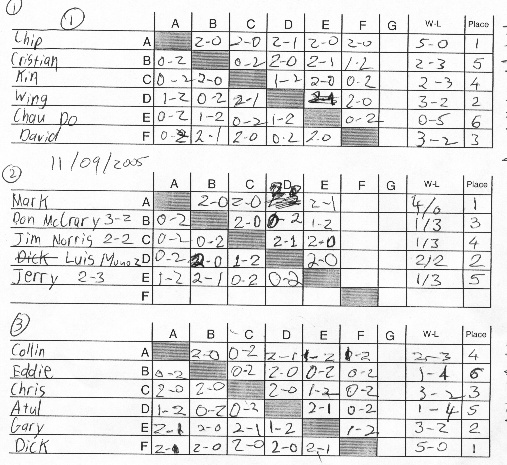 ① ①
A B C D E F G W-L Place
Chip A 2-0 2-0 2-1 2-0 2-0 5-0 1
Cristian B 0-2 0-2 2-0 2-1 1-2 2-3 5
Kin C 0-2 2-0 1-2 2-0 0-2 2-3 4
Wing D 1-2 0-2 2-1 2-0 3-2 2
Chau Do E 0-2 1-2 0-2 1-2 0-2 0-5 6
David F 0-2 2-1 2-0 0-2 2-0 3-2 3
11/09/2005
②
A B C D E F G W-L Place
Mark A 2-0 2-0 2-1 4/0 1
Don McCrary 3-2 B 0-2 2-0 0-2 1-2 1/3 3
Jim Norris 2-2 C 0-2 0-2 2-1 2-0 1/3 4
Dick Luis Munoz D 0-2 2-0 1-2 2-0 2/2 2
Jerry 2-3 E 1-2 2-1 0-2 0-2 1/3 5
F
③
A B C D E F G W-L Place
Collin A 2-0 0-2 2-1 1-2 1-2 2-3 4
Eddie B 0-2 0-2 2-0 0-2 0-2 1-4 6
Chris C 2-0 2-0 2-0 1-2 0-2 3-2 3
Atul D 1-2 0-2 0-2 2-1 0-2 1-4 5
Gary E 2-1 2-0 2-1 1-2 1-2 3-2 2
Dick F 2-1 2-0 2-0 2-0 2-1 5-0 1